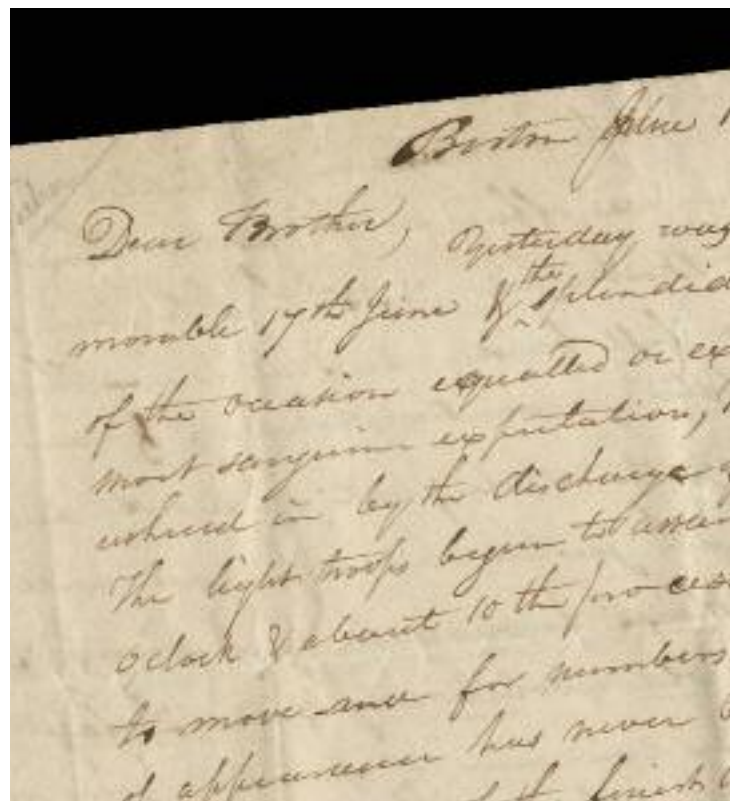 Boston June 1
Dear Brother, Yesterday was
morable 17th June & the splendid
of the occasion equalled or ex
most sanguine expectation,
ushered in by the discharge
The light troops began to assem
oclock & about 10 the proces
to move and for numbers
appearance has never
of the finest